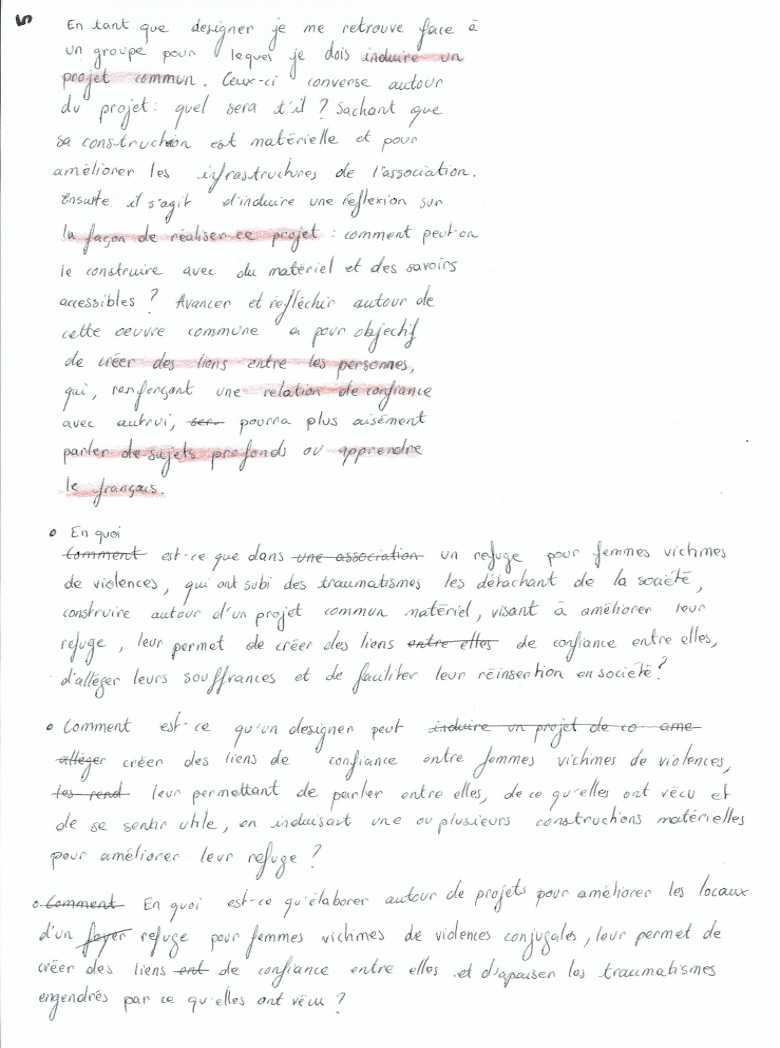 5
En tant que designer je me retrouve face à
un groupe pour lequel je dois induire un
projet commun. Ceux-ci converse autour
du projet: quel sera t'il ? Sachant que
sa construction est matérielle et pour
améliorer les infrastructures de l'association.
Ensuite il s'agit d'induire une réflexion sur
la façon de réaliser ce projet : comment peut-on
le construire avec du matériel et des savoirs
accessibles ? Avancer et réfléchir autour de
cette oeuvre commune a pour objectif
de créer des liens entre les personnes,
qui, renforçant une relation de confiance
avec autrui, ser pourra plus aisément
parler de sujets profonds ou apprendre
le français.
• En quoi
Comment est-ce que dans une association un refuge pour femmes victimes
de violences, qui ont subi des traumatismes les détachant de la société,
construire autour d'un projet commun matériel, visant à améliorer leur
refuge, leur permet de créer des liens entre elles de confiance entre elles,
d'alléger leurs souffrances et de faciliter leur réinsertion en société ?
• Comment est-ce qu'un designer peut induire un projet de co ame
alléger créer des liens de confiance entre femmes victimes de violences,
les rend leur permettant de parler entre elles, de ce qu'elles ont vécu et
de se sentir utile, en induisant une ou plusieurs constructions matérielles
pour améliorer leur refuge ?
• Comment En quoi est-ce qu'élaborer autour de projets pour améliorer les locaux
d'un foyer refuge pour femmes victimes de violences conjugales, leur permet de
créer des liens ent de confiance entre elles et d'apaiser les traumatismes
engendrés par ce qu'elles ont vécu ?